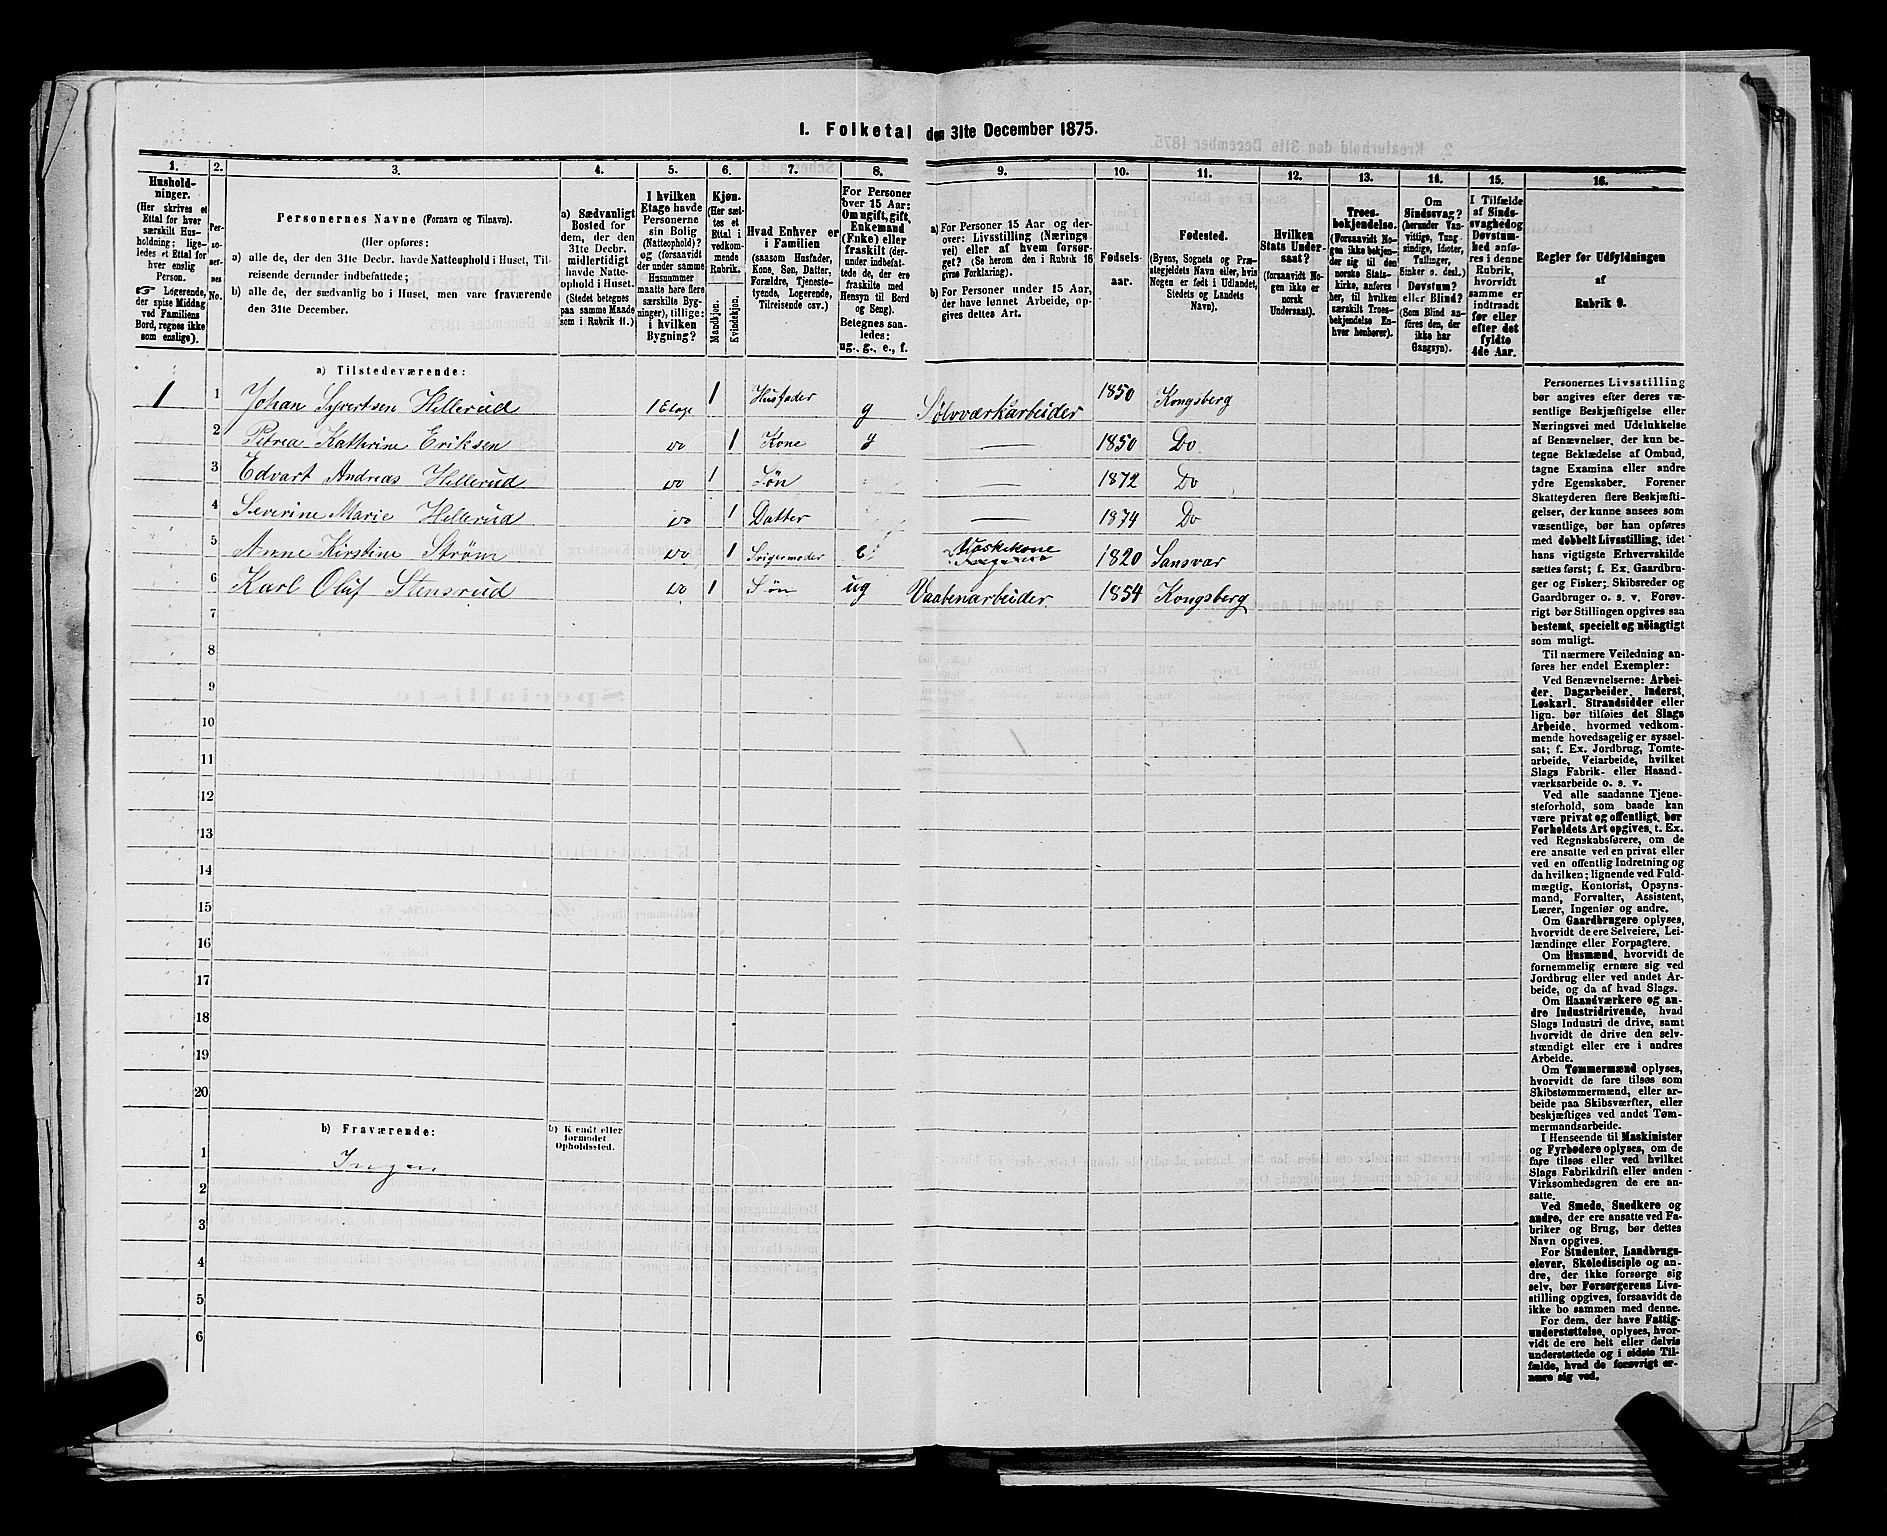 I. Folketal den 31te December 1875.
1. 2. 3. 4. 5. 6. 7. 8. 9. 10. 11. 12. 13. 14. 15. 16.
Hushold-
ninger.
(Her skrives et
Ettal for hver
særskilt Hus-
holdning; lige-
ledes et Ettal for
hver enslig
Person.
☞ Logerende,
der spise Middag
ved Familiens
Bord, regnes ikke
som enslige).
Per-
so-
ner-
nes
No.
Personernes Navne (Fornavn og Tilnavn).
(Her opføres:
a) alle de, der den 31te Decbr. havde Natteophold i Huset, Til-
reisende derunder indbefattede;
b) alle de, der sædvanlig bo i Huset, men vare fraværende
den 31te December.
a) Sædvanligt
Bosted for
dem, der den
31te Decbr.
midlertidigt
havde Natte-
ophold i Huset.
(Stedet betegnes
paa samme Maade
som i Rubrik 11.)
I hvilken
Etage havde
Personerne
sin Bolig
(Natteophold)?
og (forsaavidt
der under samme
Husnummer
maatte høre flere
særskilte Byg-
ninger), tillige:
i hvilken
Bygning?
Kjøn.
(Her sæt-
tes et
Ettal i
vedkom-
mende
Rubrik.
Mandkjøn.
Kvindekjøn.
Hvad Enhver er
i Familien
(saasom Husfader,
Kone, Søn, Datter,
Forældre, Tjeneste-
tyende, Logerende,
Tilreisende osv.)
For Personer
over 15 Aar:
Om ugift, gift,
Enkemand
(Enke) eller
fraskilt (der-
under indbefat-
tede de, der ere
fraskilte med
Hensyn til Bord
og Seng).
Betegnes saa-
ledes:
ug., g., e., f.
a) For Personer 15 Aar og der-
over: Livsstilling (Nærings
vei) eller af hvem forsør-
get? (Se herom den i Rubrik 16
givne Forklaring).
b) For Personer under 15 Aar,
der have lønnet Arbeide, op-
gives dettes Art.
Fødsels-
aar.
Fødested.
(Byens, Sognets og Præ-
stegjeldets Navn eller, hvis
Nogen er født i Udlandet,
Stedets og Landets
Navn).
Hvilken
Stats Under-
saat?
(forsaavidt No-
gen ikke er
norsk
Undersaat).
Troes-
bekjendelse.
(Forsaavidt No-
gen ikke bekjen-
der sig til den
norske Stats-
kirke, anføres
her, til hvilken
særskilt Troes-
bekjendelse En-
hver henhører).
Om
Sindssvag?
(herunder Van-
vittige, Tung-
sindige, Idioter,
Tullinger,
Sinker o. desl.)
Døvstum?
eller Blind?
(Som Blind an-
føres den, der
ikke har
Gangsyn).
I Tilfælde
af Sinds-
svaghed og
Døvstum-
hed anfø-
res i denne
Rubrik,
hvorvidt
samme er
indtraadt
før eller
efter det
fyldte
4de Aar.
Regler for Udfyldningen
af
Rubrik 9.
a) Tilstedeværende:
1 1 Johan Syvertsen Hillerud 1 Etage 1 Husfader g Sølvværksarbeider 1850 Kongsberg
2 Petrea Kathrine Eriksen do 1 Kone g — 1850 Do
3 Edvart Andreas Hillerud do 1 Søn — 1872 Do
4 Severine Marie Hillerud do 1 Datter — 1874 Do
5 Anne Kirstine Strøm do 1 Svigermoder e Vaskekone 1820 Sansvar
6 Karl Oluf Stensrud do 1 Søn ug Vaabenarbeider 1854 Kongsberg
7
8
9
10
11
12
13
14
15
16
17
18
19
20
b) Fraværende:
b) Kendt eller
formodet
Opholdssted.
1 Ingen
2
3
4
5
6
Personernes Livsstilling
bør angives efter deres væ-
sentlige Beskjæftigelse eller
Næringsvei med Udelukkelse
af Benævnelser, der kun be-
tegne Beklædelse af Ombud,
tagne Examina eller andre
ydre Egenskaber. Forener
Skatteyderen flere Beskjæfti-
gelser, der kunne ansees som
væsentlige, bør han opføres
med dobbelt Livsstilling, idet
hans vigtigste Erhvervskilde
sættes først; f. Ex. Gaardbru-
ger og Fisker; Skibsreder og
Gaardbruger o. s. v. Forøv-
rigt bør Stillingen opgives saa
bestemt, specielt og nøiagtigt
som muligt.
Til nærmere Veiledning an-
føres her endel Exempler:
Ved Benævnelserne: Arbei-
der, Dagarbeider, Inderst,
Løskarl, Strandsidder eller
lign. bør tilføies det Slags
Arbeide, hvormed vedkom-
mende hovedsagelig er syssel-
sat; f. Ex. Jordbrug, Tomte-
arbeide, Veiarbeide, hvilket
Slags Fabrik- eller Haand-
værksarbeide o. s. v.
Ved alle saadanne Tjene-
steforhold, som baade kan
være privat og offentligt, bør
Forholdets Art opgives, t. Ex.
ved Regnskabsførere, om de
ere ansatte ved en privat eller
ved en offentlig Indretning og
da hvilken; lignende ved Fuld-
mægtig, Kontorist, Opsyns-
mand, Forvalter, Assistent,
Lærer, Ingeniør og andre.
Om Gaardbrugere oplyses,
hvorvidt de ere Selveiere, Lei-
lændinge eller Forpagtere.
Om Husmænd, hvorvidt de
fornemmelig ernære sig ved
Jordbrug eller ved andet Ar-
beide, og da af hvad Slags.
Om Haandværkere og an-
dre Industridrivende, hvad
Slags Industri de drive, samt
hvorvidt de drive den selv-
stændigt eller ere i andres
Arbeide.
Om Tømmermænd oplyses,
hvorvidt de fare tilsøs som
Skibstømmermænd, eller ar-
beide paa Skibsværfter, eller
beskjæftiges ved andet Tøm-
mermandsarbeide.
I Henseende til Maskinister
og Fyrbødere oplyses, om de
fare tilsøs eller ved hvilket
Slags Fabrikdrift eller anden
Virksomhedsgren de ere an-
satte.
Ved Smede, Snedkere og
andre, der ere ansatte ved Fa-
briker og Brug, bør dettes
Navn opgives.
For Studenter, Landbrugs-
elever, Skoledisciple og an-
dre, der ikke forsørge sig
selv, bør Forsørgerens Livs-
stilling opgives, forsaavidt de
ikke bo sammen med denne.
For dem, der have Fattig-
understøttelse, oplyses, hvor-
vidt de ere helt eller delvis
understøttede og i sidste Til-
fælde, hvad de forøvrigt er-
nære sig ved.